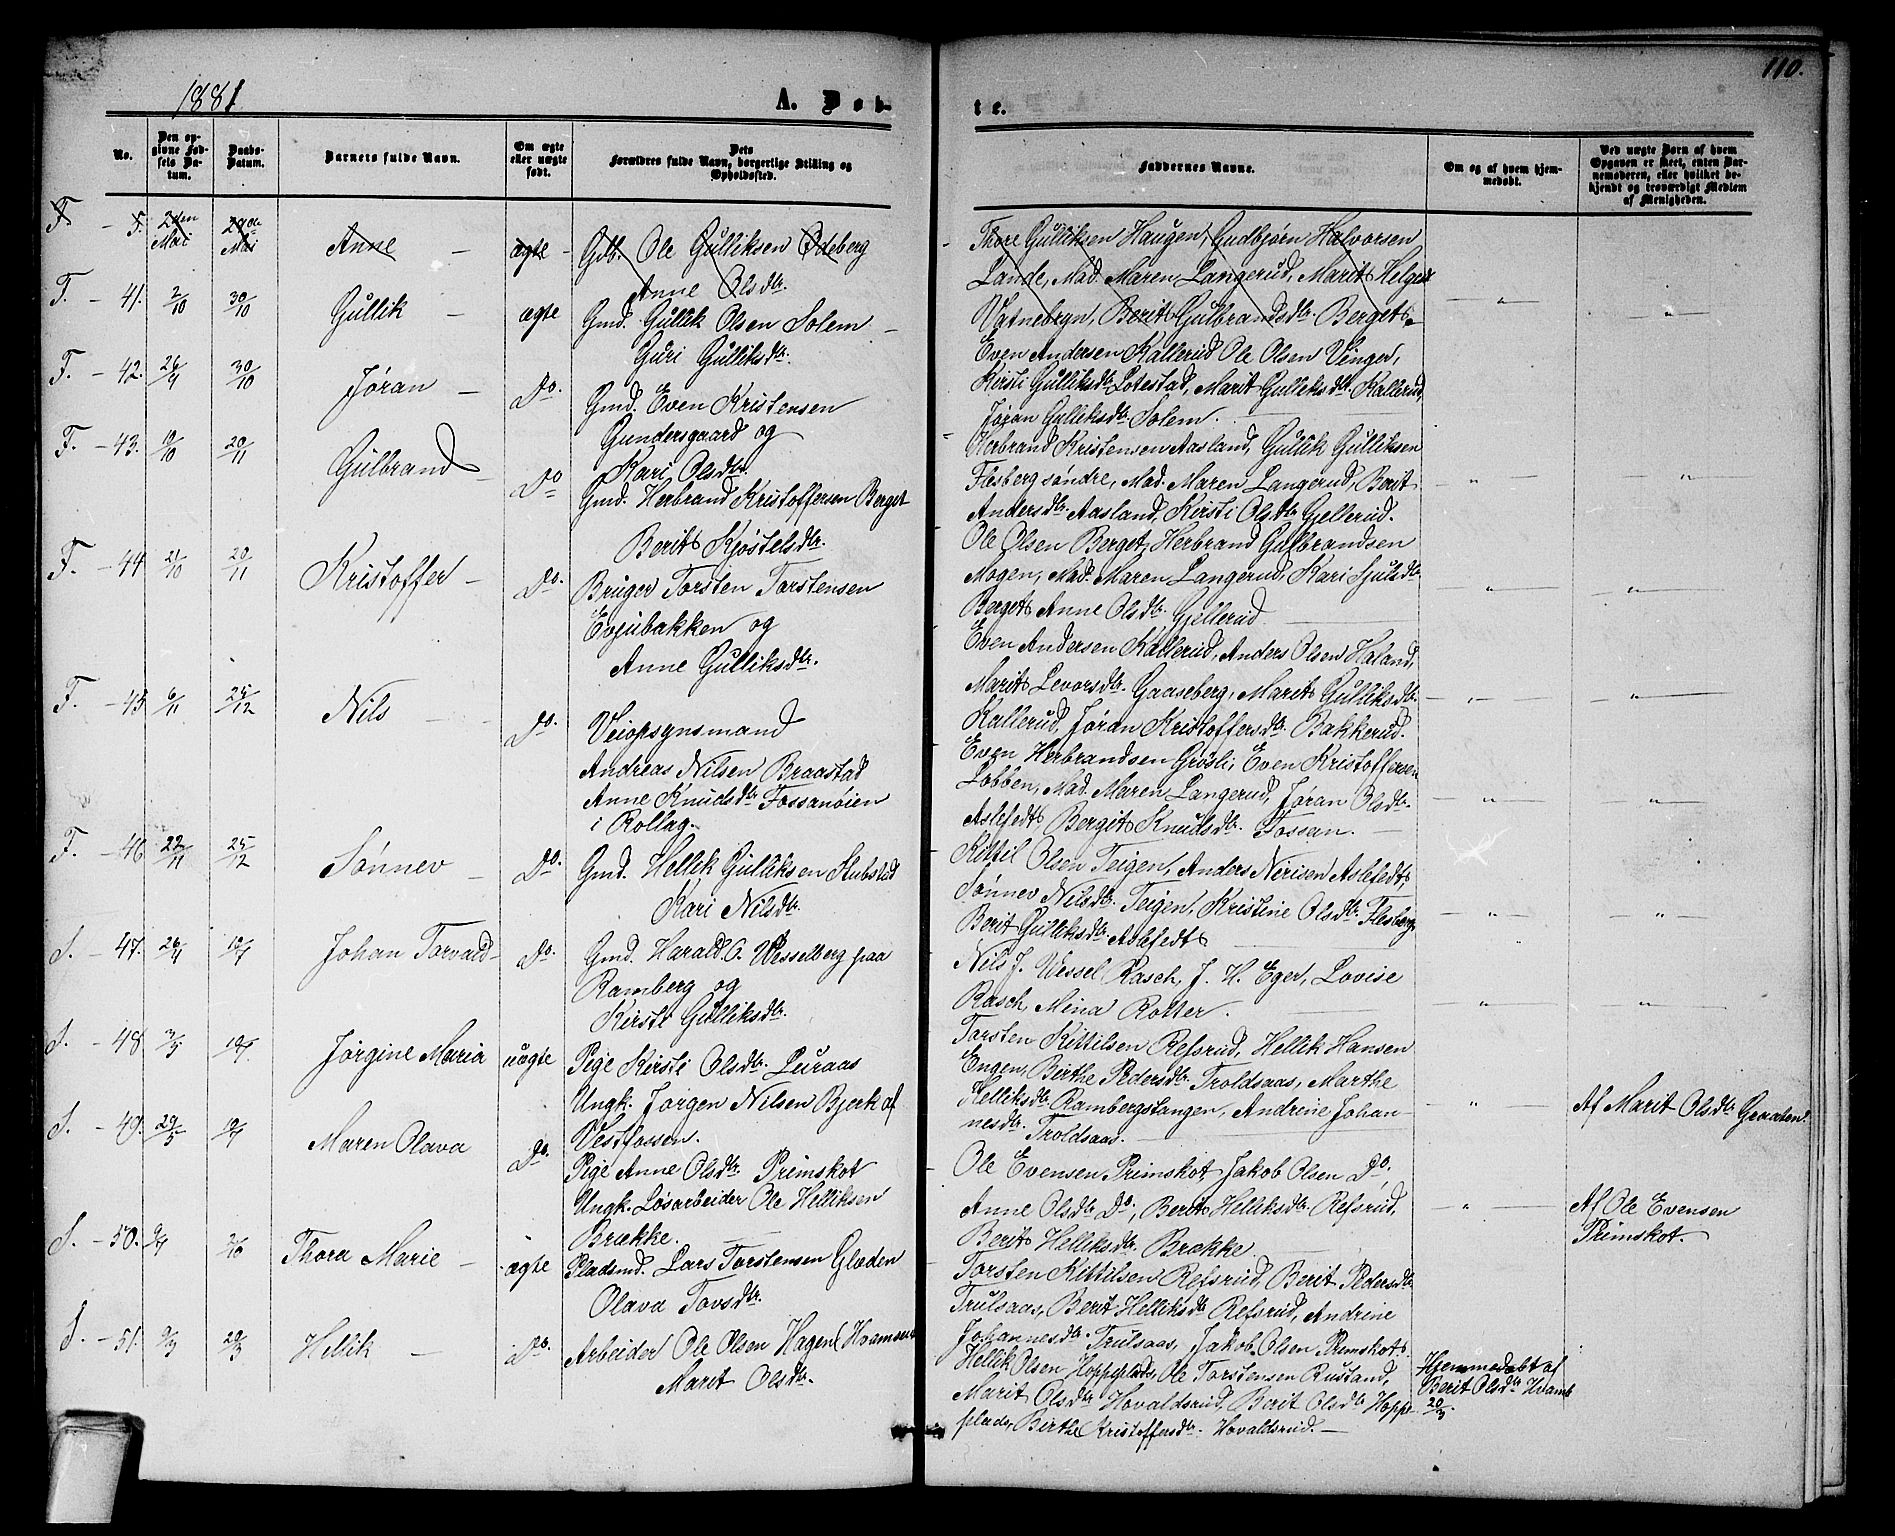 1881
A. Døb-
te.
110.
No.
Den opgivne Fødsels Datum.
Daabs-Datum.
Barnets fulde Navn.
Om ægte eller uægte født.
Dets Forældres fulde Navn, borgerlige Stilling og Opholdssted.
Faddernes Navne.
Om og af hvem hjemmedøbt.
Ved uægte Børn af hvem Opgaven er skeet, enten Barnemoderen, eller hvilket bekjendt og troværdigt Medlem af Menigheden.
F. - 5. 2den Mai Mai Anne - ægte - Gdb. Ole Gulliksen Ødeberg
Anne Olsdtr.
Thore Gulliksen Haugen, Gudbjørn Halvorsen
Lande, Mad. Maren Langerud, Marit Helges
Vatnebryn, Berit Gulbrandsdtr. Berget
F. - 41. 2/10 30/10 Gullik - ægte Gmd. Gullik Olsen Solem -
Guri Gulliksdtr.
Even Andersen Kallerud, Ole Olsen Vinger,
Kirsti Gulliksdtr. Lotestad, Marit Gulliksdtr. Kallerud,
Jøran Gulliksdtr. Solem.
F. - 42. 30/10 Jøran - Do. Gmd. Even Kristensen
Gundersgaard og
Kari Olsdtr.
Herbrand Kristensen Aasland, Gullik Gulliksen
Flesberg søndre, Mad. Maren Langerud, Berit
Andersdtr. Aasland, Kirsti Olsdtr. Gjellerud.
F. - 43. 19/10 20/11 Gulbrand - Do Gmd. Herbrand Kristoffersen Berget
Berit Kjøstelsdtr.
Ole Olsen Berget, Herbrand Gulbrandsen
Mogen, Mad. Maren Langerud, Kari Sjulsdtr.
Berget, Anne Olsdtr. Gjellerud
F. - 44 21/10 20/11 Kristoffer - Do. Bruger Torsten Torstensen
Evjubakken og
Anne Gulliksdtr.
Even Andersen Kallerud, Anders Olsen Haland,
Marit Levorsdtr. Gaaseberg, Marit Gulliksdtr.
Kallerud, Jøran Kristoffersdtr. Bakkerud.
F. - 45 6/11 25/12 Nils - Do. Veiopsynsmand
Andreas Nilsen Braastad
Anne Knudsdtr. Fossanøien
i Rollag.
Even Herbrandsen Grøsli, Even Kristoffersen
Lobben, Mad. Maren Langerud, Jøran Olsdtr.
Aslefedt, Bergit Knudsdtr. Fossan.
F. - 46 22/11 25/12 Sønnev - Do. Gmd. Hellik Gulliksen Stubstad
Kari Nilsdtr.
Kittil Olsen Teigen, Anders Nirisen Aslefedt,
Sønnev Nilsdtr. Teigen, Kristine Olsdtr. Flesberg,
Berit Gulliksdtr. Aslefedt
S. - 47. Johan Torvald - Do. Gmd. Harald O. Wesselberg paa
Ramberg og
Kirsti Gulliksdtr.
Nils J. Wessel Rasch, J. H. Eger, Lovise
Rasch, Mina Rotter.
S. - 48 3/5 Jørgine Maria uægte Pige Kirsti Olsdtr. Luraas
Ungk. Jørgen Nilsen Bjerk af
Vestfossen.
Torsten Kittilsen Refsrud, Hellik Hansen
Engen, Berthe Pedersdtr. Troldsaas, Marthe
Helliksdtr. Rambergstangen, Andrine Johan-
nesdtr. Troldsaas.
Af Marit Olsdtr.
S. - 49. 29/5 Maren Olava Do. Pige Anne Olsdtr. Primskot
Ungk. Løsarbeider Ole Helliksen
Brække.
Ole Evensen Primskot, Jakob Olsen Do.,
Anne Olsdtr. Do, Berit Helliksdtr. Refsrud,
Berit Helliksdtr. Brække.
Af Ole Evensen
Primskot.
S. - 50. 2/10 Thora Marie - ægte Pladsmd. Lars Torstensen Glæden
Olava Tovsdtr.
Torsten Kittilsen Refsrud, Berit Pedersdtr.
Trulsaas, Berit Helliksdtr. Refsrud, Andrine
Johannesdtr. Trulsaas, Jakob Olsen Primskot.
S. - 51. 9/3 20/3 Hellik - Do. Arbeider Ole Olsen Hagen
Marit Olsdtr.
Hellik Olsen Hoppeplads, Ole Torstensen Rustand,
Marit Olsdtr. Hovaldsrud, Berit Olsdtr. Hoppe-
plads, Birthe Kristoffersdtr. Hovaldsrud. -
Hjemmedøbt af
Berit Olsdtr. Hvamb
20/3.